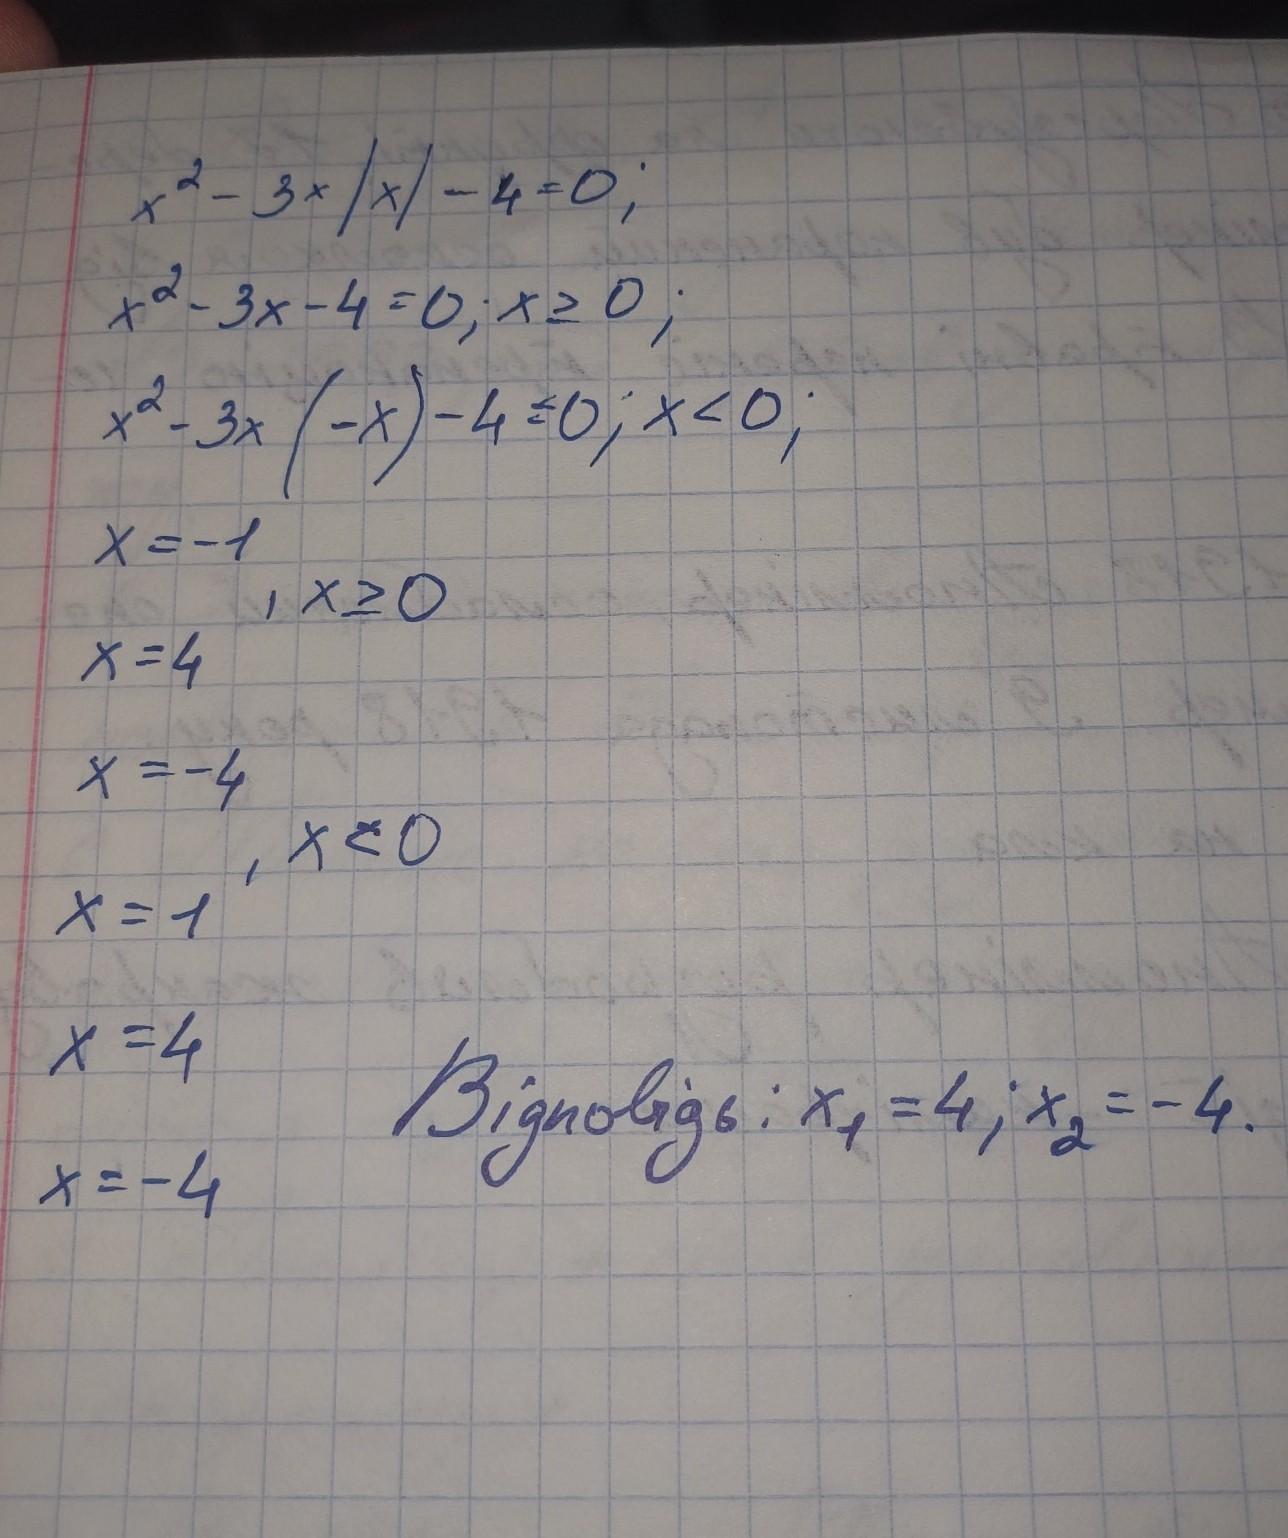 x² - 3x|x| - 4 = 0;
x² - 3x - 4 = 0; x ≥ 0;
x² - 3x(-x) - 4 = 0; x < 0;
x = -1
, x ≥ 0
x = 4
x = -4
, x < 0
x = 1
x = 4
Відповідь: x₁ = 4; x₂ = -4.
x = -4